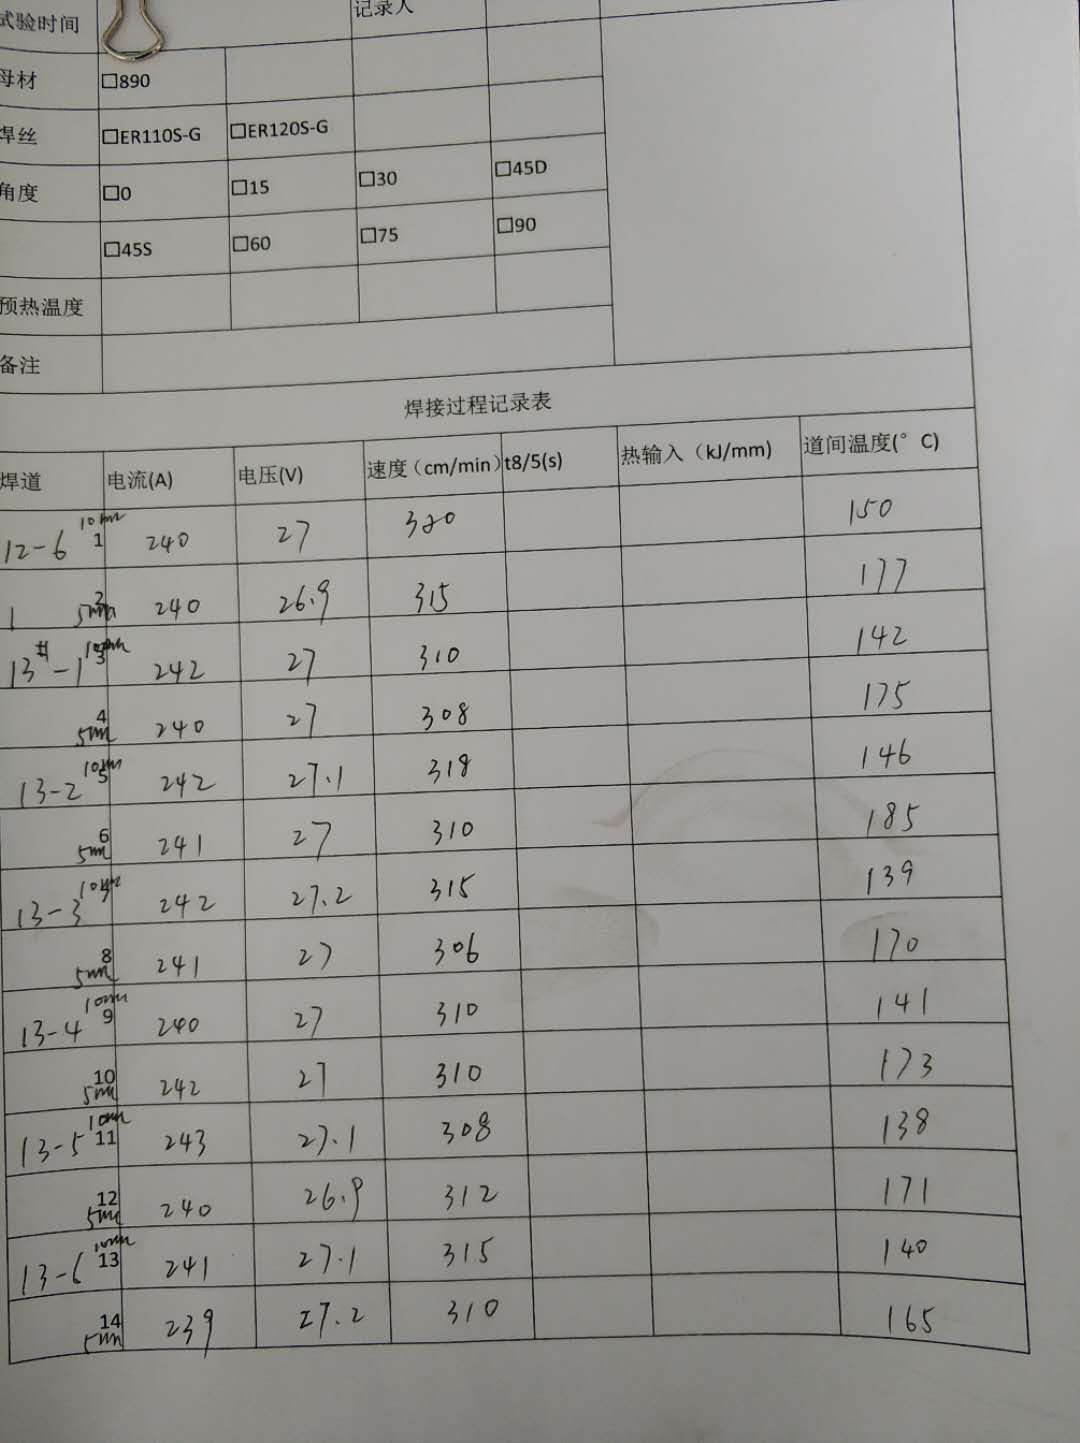 试验时间 记录人
母材 □890
焊丝 □ER110S-G □ER120S-G
角度 □0 □15 □30 □45D
□45S □60 □75 □90
预热温度
备注
焊接过程记录表
焊道 电流(A) 电压(V) 速度(cm/min) t8/5(s) 热输入(kJ/mm) 道间温度(°C)
12-6 10mm 1 240 27 320 150
1 2 5mm 240 26.9 315 177
13#-1 10mm 3 242 27 310 142
4 5mm 240 27 308 175
13-2 10mm 5 242 27.1 318 146
6 5mm 241 27 310 185
13-3 10mm 7 242 27.2 315 139
8 5mm 241 27 306 170
13-4 10mm 9 240 27 310 141
10 5mm 242 27 310 173
13-5 10mm 11 243 27.1 308 138
12 5mm 240 26.9 312 171
13-6 10mm 13 241 27.1 315 140
14 5mm 239 27.2 310 165